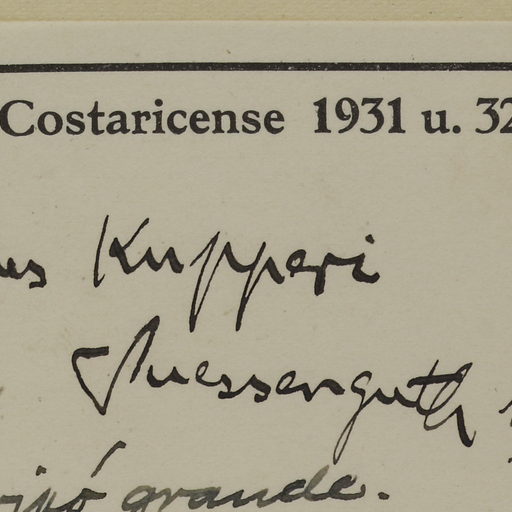 Costaricense 1931 u. 32
us Kupperi
Suessenguth
grande.